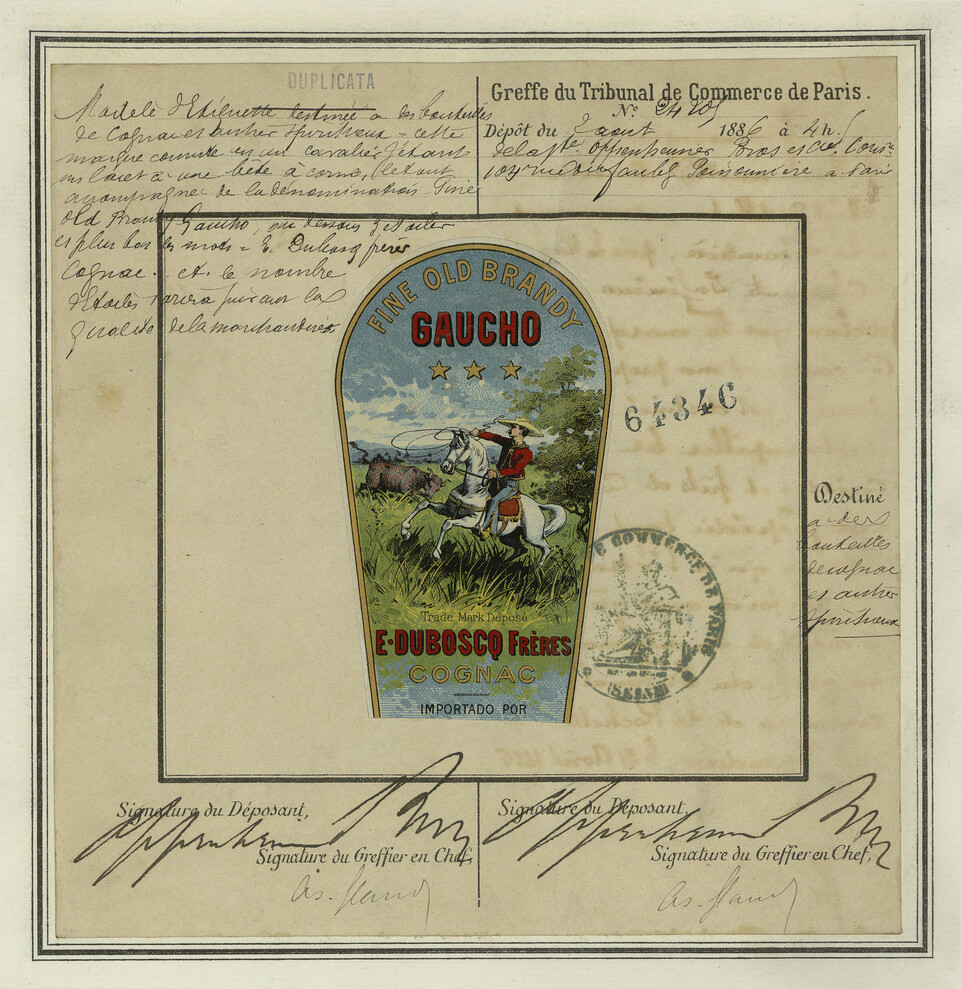 DUPLICATA
Modèle d'Etiquette destinée a des bouteilles
de Cognac et autres spiritueux = cette
marque consiste en un cavalier jetant
un lacet à une bête à corne, le tout
accompagné de la dénomination Fine
Old Brandy Gaucho, au dessous 3 etoiles
et plus bas les mots = E. Duboscq frères
Cognac. et le nombre
d'Etoiles variera suivant la
qualité de la marchandise
Greffe du Tribunal de Commerce de Paris.
N°
Dépôt du 2 aout 1886 à 4 h.
de la Sté Oppenheimer Bros et Cie.
104 rue du faubg Poissonnière a Paris
FINE OLD BRANDY
GAUCHO
64346
Trade Mark Déposé
E. DUBOSCQ FRÈRES
COGNAC
IMPORTADO POR
Destiné
a des
bouteilles
de cognac
et autres
spiritueux
DE COMMERCE DE PARIS
(SEINE)
Signature du Déposant,
Oppenheimer Bros
Signature du Greffier en Chef,
Signature du Déposant,
Oppenheimer Bros
Signature du Greffier en Chef,